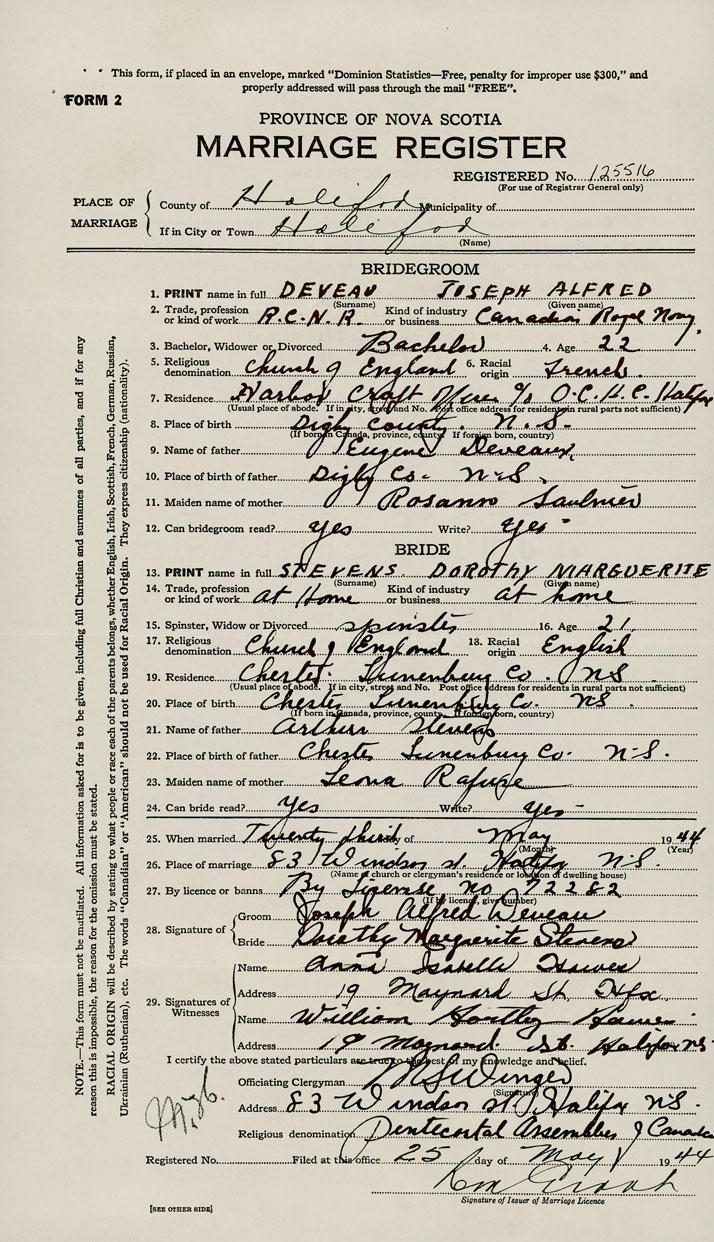 This form, if placed in an envelope, marked "Dominion Statistics—Free, penalty for improper use $300," and
properly addressed will pass through the mail "FREE".
FORM 2
PROVINCE OF NOVA SCOTIA
MARRIAGE REGISTER
REGISTERED No. 125516
(For use of Registrar General only)
PLACE OF MARRIAGE
County of Halifax Municipality of
If in City or Town Halifax
(Name)
BRIDEGROOM
1. PRINT name in full DEVEAU JOSEPH ALFRED
(Surname) (Given name)
2. Trade, profession or kind of work R.C.N.R. Kind of industry or business Canadian Royal Navy
3. Bachelor, Widower or Divorced Bachelor 4. Age 22
5. Religious denomination Church of England 6. Racial origin French
7. Residence Harbor Craft % O.C.H.C. Halifax
(Usual place of abode. If in city, street and No. Post office address for residents in rural parts not sufficient)
8. Place of birth Digby County. N.S.
(If born in Canada, province, county. If foreign born, country)
9. Name of father Eugene Deveaux
10. Place of birth of father Digby Co. N.S.
11. Maiden name of mother Rosann Saulnier
12. Can bridegroom read? yes Write? yes
BRIDE
13. PRINT name in full STEVENS DOROTHY MARGUERITE
(Surname) (Given name)
14. Trade, profession or kind of work at Home Kind of industry or business at home
15. Spinster, Widow or Divorced spinster 16. Age 21
17. Religious denomination Church of England 18. Racial origin English
19. Residence Chester Lunenburg Co. NS
(Usual place of abode. If in city, street and No. Post office address for residents in rural parts not sufficient)
20. Place of birth Chester Lunenburg Co. NS.
(If born in Canada, province, county. If foreign born, country)
21. Name of father Arthur Stevens
22. Place of birth of father Chester Lunenburg Co. N.S.
23. Maiden name of mother Leona Rafuse
24. Can bride read? Yes Write? Yes
25. When married Twenty third of May 1944
(Month) (Year)
26. Place of marriage 83 Windsor St. Halifax N.S.
(Name of church or clergyman's residence or location of dwelling house)
27. By licence or banns By License no 72282
(If by licence, give number)
28. Signature of
Groom Joseph Alfred Deveau
Bride Dorothy Marguerite Stevens
29. Signatures of Witnesses
Name Anna Isabelle Hawes
Address 19 Maynard St. Hfx.
Name William Hawes
Address 19 Maynard St. Halifax NS
I certify the above stated particulars are true to the best of my knowledge and belief.
Officiating Clergyman Winger
(Signature)
Address 83 Windsor St. Halifax N.S.
Religious denomination Pentecostal Assemblies of Canada
Registered No. Filed at this office 25 day of May 1944
Signature of Issuer of Marriage Licence
[SEE OTHER SIDE]
NOTE.—This form must not be mutilated. All information asked for is to be given, including full Christian and surnames of all parties, and if for any
reason this is impossible, the reason for the omission must be stated.
RACIAL ORIGIN will be described by stating to what people or race each of the parents belongs, whether English, Irish, Scottish, French, German, Russian,
Ukrainian (Ruthenian), etc. The words "Canadian" or "American" should not be used for Racial Origin. They express citizenship (nationality).